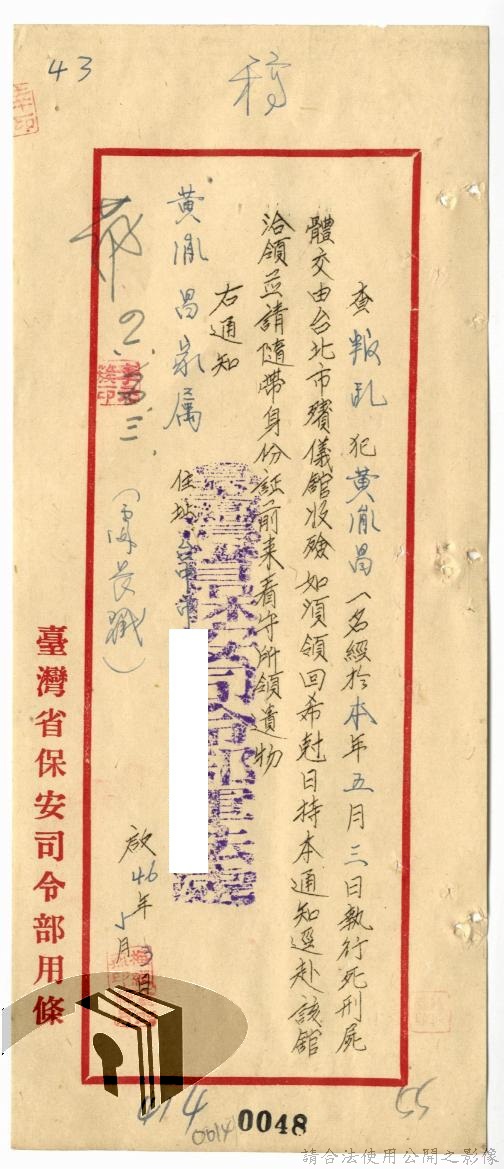 43
稿
查叛亂犯黃胤昌一名經於本年五月三日執行死刑屍
體交由台北市殯儀館收殮如須領回希尅日持本通知逕赴該館
洽領並請隨帶身份証前來看守所領遺物
右通知
黃胤昌家属
住址台中市
啟46年5月3日
臺灣省保安司令部用條
0048
請合法使用公開之影像